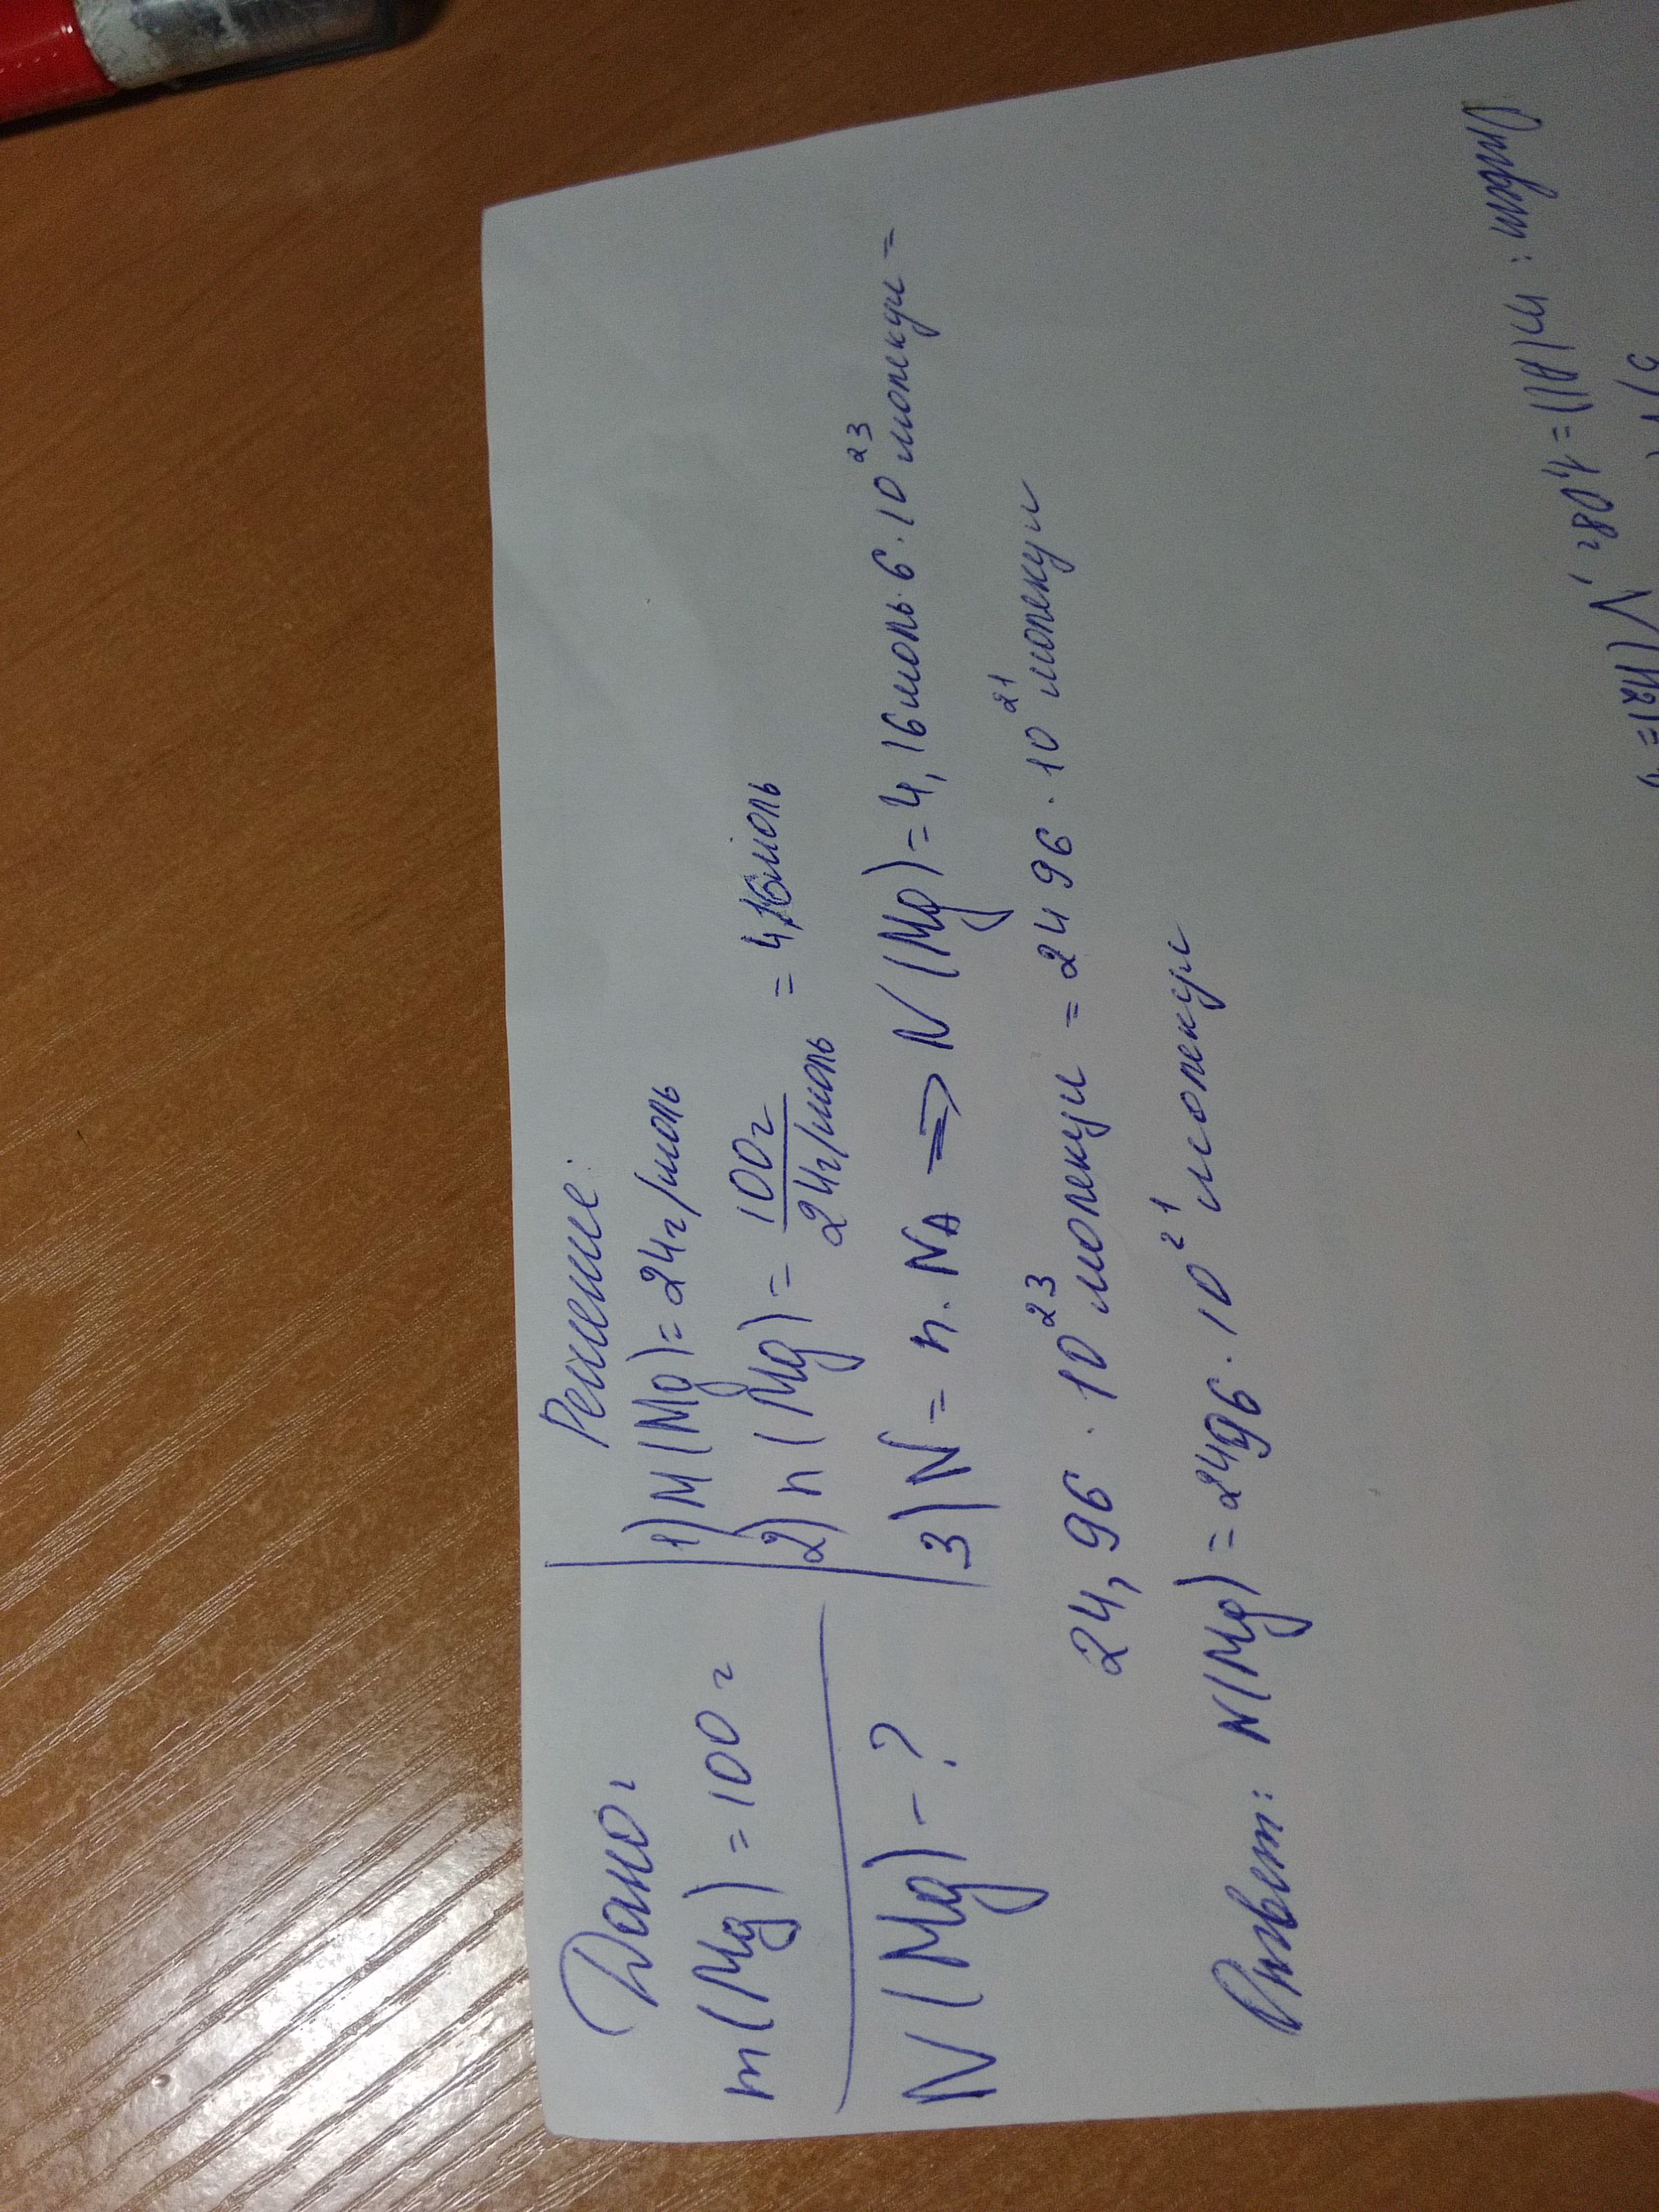 Дано:
m(Mg) = 100 г
N(Mg) - ?
Решение:
1) M(Mg) = 24г/моль
2) n(Mg) = 100г / 24г/моль = 4,16моль
3) N = n · NA ⇒ N(Mg) = 4,16моль · 6 · 10²³ молекул =
24,96 · 10²³ молекул = 2496 · 10²¹ молекул
Ответ: N(Mg) = 2496 · 10²¹ молекул
Ответ: m(Al) =